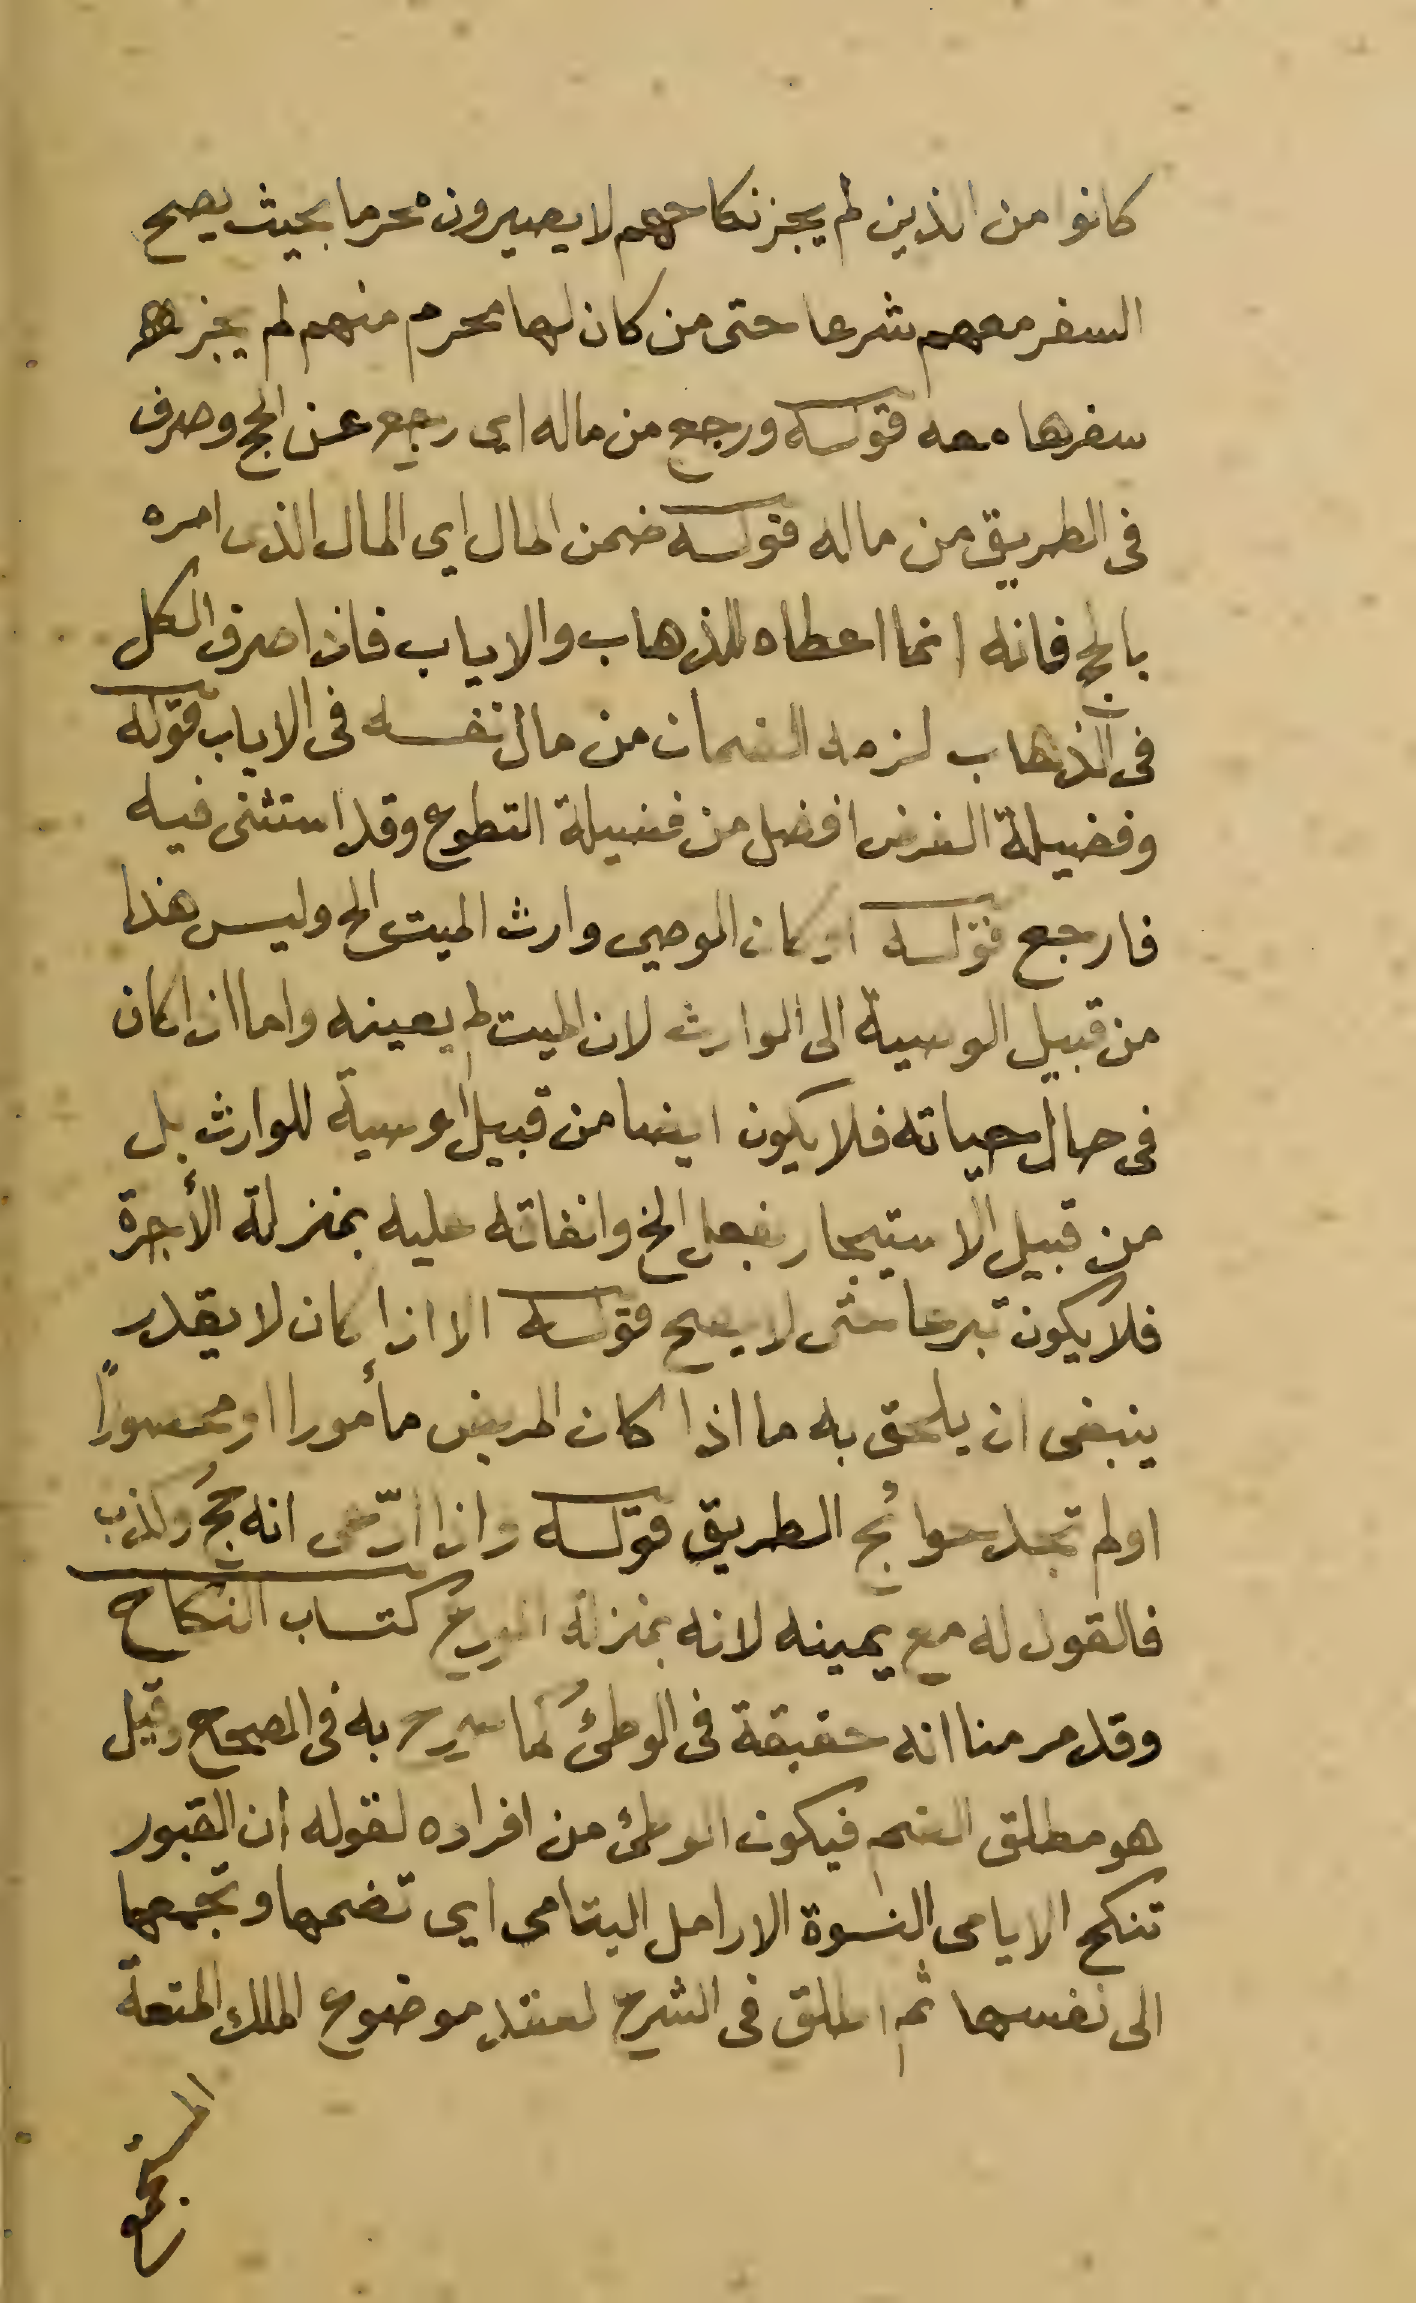 كانوا من الذين لم يجز نكاحهم لا يصيرون محرما بحيث يصح
السفر معهم شرعا حتى من كان لها محرم منهم لم يجز
سفرها معه قوله ورجع من ماله اي رجع عن الحج وصرف
فى الطريق من ماله قوله ضمن المال اي المال الذى امره
بالحج فانه انما اعطاه للذهاب والاياب فاذا صرف الكل
فى الذهاب لزمه الضمان من مال نفسه فى الاياب قوله
وفضيلة الفرض افضل من فضيلة التطوع وقد استثنى فيه
فارجع قوله او كان الوصى وارث الميت الخ وليس هذا
من قبيل الوسية الى الوارث لان الميت لم يعينه واما اذا كان
فى حال حياته فلا يكون ايضا من قبيل الوسية للوارث بل
من قبيل الاستيجار بفعل الخ وانفاقه عليه بمنزلة الأجرة
فلا يكون تبرعا حتى لا يصح قوله الا اذا كان لا يقدر
ينبغى ان يلحق به ما اذا كان المريض مأمورا او محسورًا
اولم تجد حوائج الطريق قوله واذا ادّعى انه حج وكذب
فالقول له مع يمينه لانه بمنزلة المودع كتاب النكاح
وقد مر منا انه حقيقة فى الوطئ كما صرح به فى الصحاح وقيل
هو مطلق الضم فيكون الوطئ من افراده لقوله ان القبور
تنكح الايامى النسوة الارامل اليتامى اي تضمها وتجمعها
الى نفسها ثم اطلق فى الشرح لعقد موضوع الملك المتعة